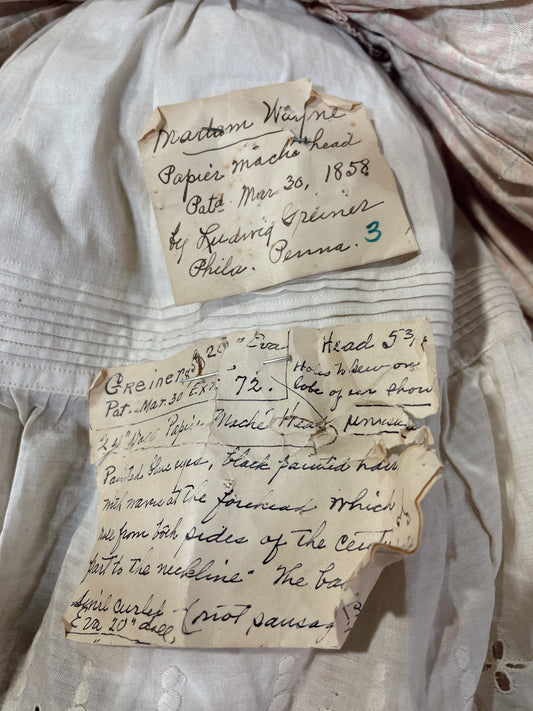 Madam Wayne
Papier maché head
Patd. Mar. 30, 1858
by Ludwig Greiner
Phila. Penna. 3
Greiner 20" Eva
Pat. Mar. 30 Ext. 72.
Head 5 3/
Holes to sew on
lobe of ear show
20" Doll Papier Maché Head
Painted blue eyes, black painted hair
with waves at the forehead which
rise from both sides of the cent
part to the neckline. The ba
curls (not pausag
Eva 20" doll